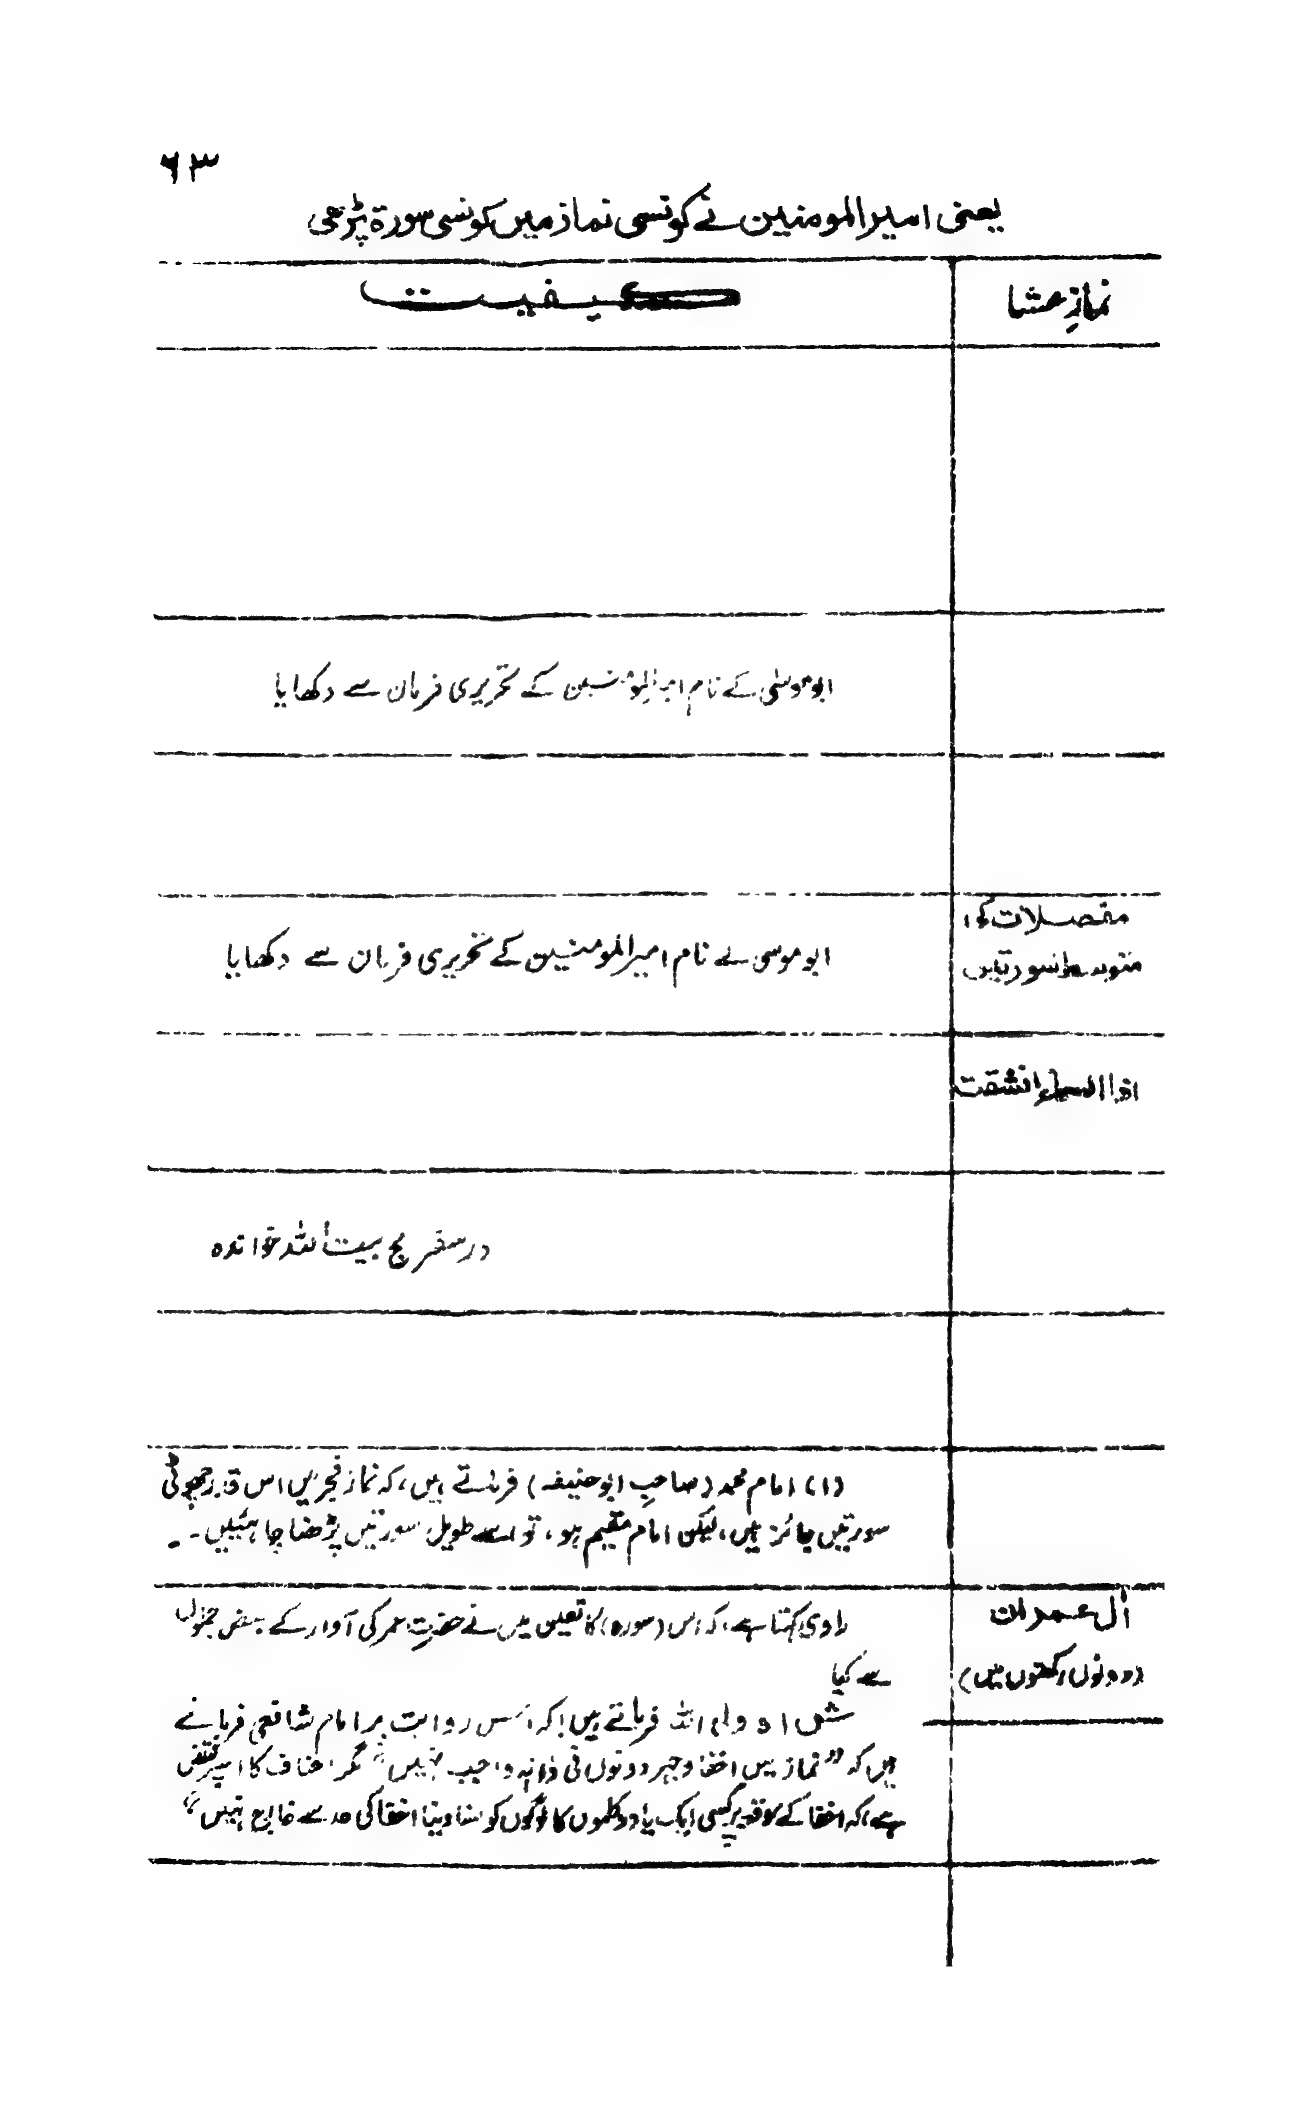 ۶۳
یعنی امیرالمومنین نے کونسی نماز میں کونسی سورۃ پڑھی
نمازِ عشا
کیفیت
ابوموسیٰ کے نام امیرالمومنین کے تحریری فرمان سے دکھایا
مفصلات کی
متوسط سورتیں
ابوموسی کے نام امیرالمومنین کے تحریری فرمان سے دکھایا
اذا السماء انشقت
در سفر حج بیت اللہ خواندہ
(۱) امام محمد (صاحبِ ابوحنیفہ) فرماتے ہیں، کہ نماز فجر میں اس قدر چھوٹی
سورتیں جائز ہیں، لیکن امام مقیم ہو، تو اسے طویل سورتیں پڑھنا چاہئیں۔
آل عمران
(دونوں رکعتوں میں)
راوی کہتا ہے، کہ اس (سورہ) کا تعین میں نے حضرت عمر کی آواز کے بعض
سے کیا
شاہ ولی اللہ فرماتے ہیں کہ اس روایت پر امام شافعی فرماتے
ہیں کہ ”نماز میں اخفا و جہر دونوں فی ذاتہ واجب نہیں“ مگر احناف کا
ہے، کہ اخفا کے موقعہ پر کسی ایک یا دو کلموں کا لوگوں کو سنا دینا اخفا کی حد سے خارج نہیں“